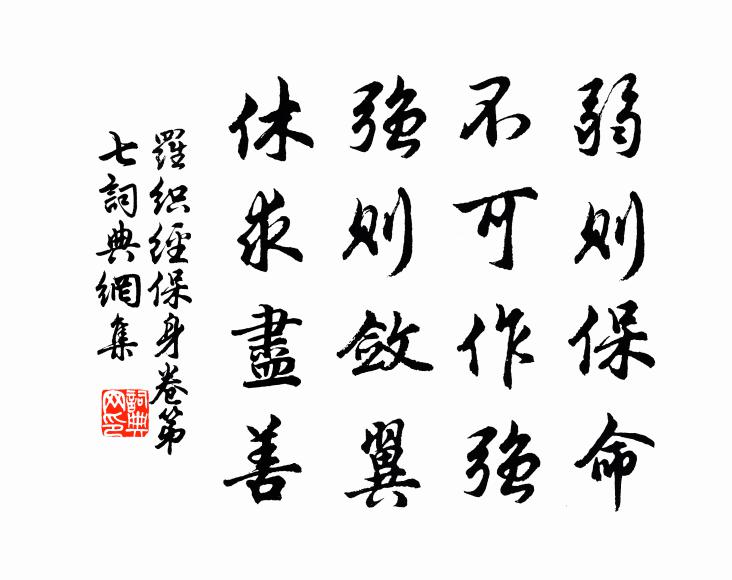 弱則保命
不可作強
強則斂翼
休求盡善
羅織經保身卷第
七詞典網集
詞典
网印